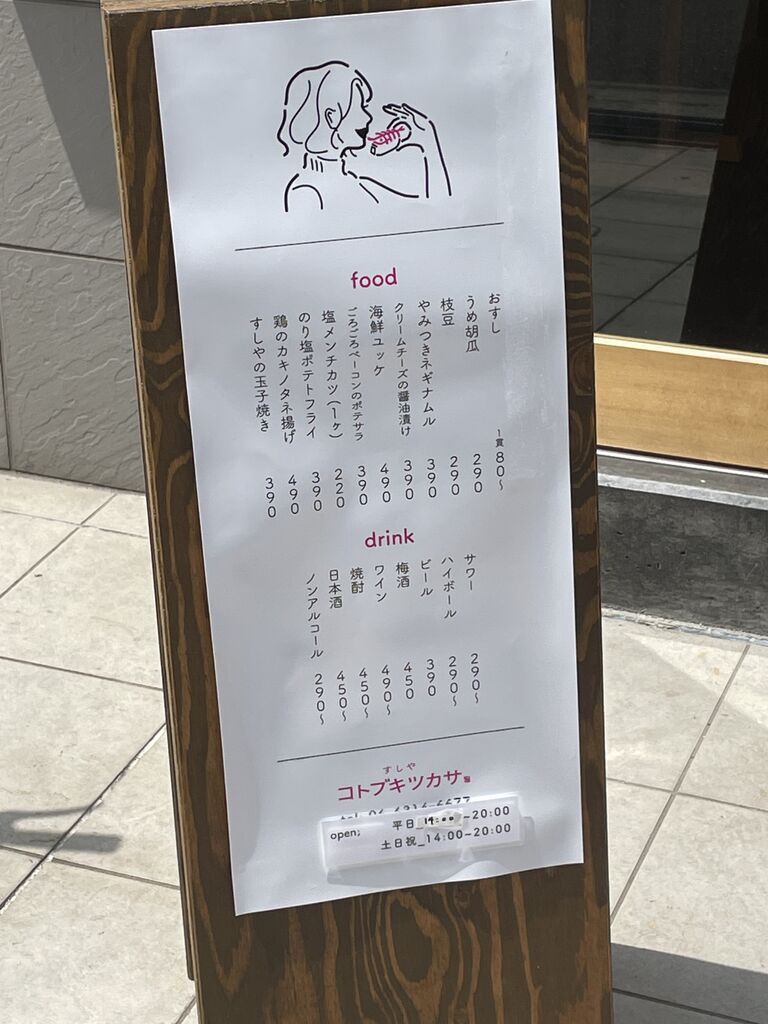 food
おすし 1貫80〜
うめ胡瓜 290
枝豆 290
やみつきネギナムル 390
クリームチーズの醤油漬け 390
海鮮ユッケ 490
ごろごろベーコンのポテサラ 390
塩メンチカツ(1ヶ) 220
のり塩ポテトフライ 390
鶏のカキノタネ揚げ 490
すしやの玉子焼き 390
drink
サワー 290〜
ハイボール 290〜
ビール 390
梅酒 450
ワイン 490〜
焼酎 450〜
日本酒 450〜
ノンアルコール 290〜
すしや
コトブキツカサ
open; 平日_14:00~20:00
土日祝_14:00~20:00